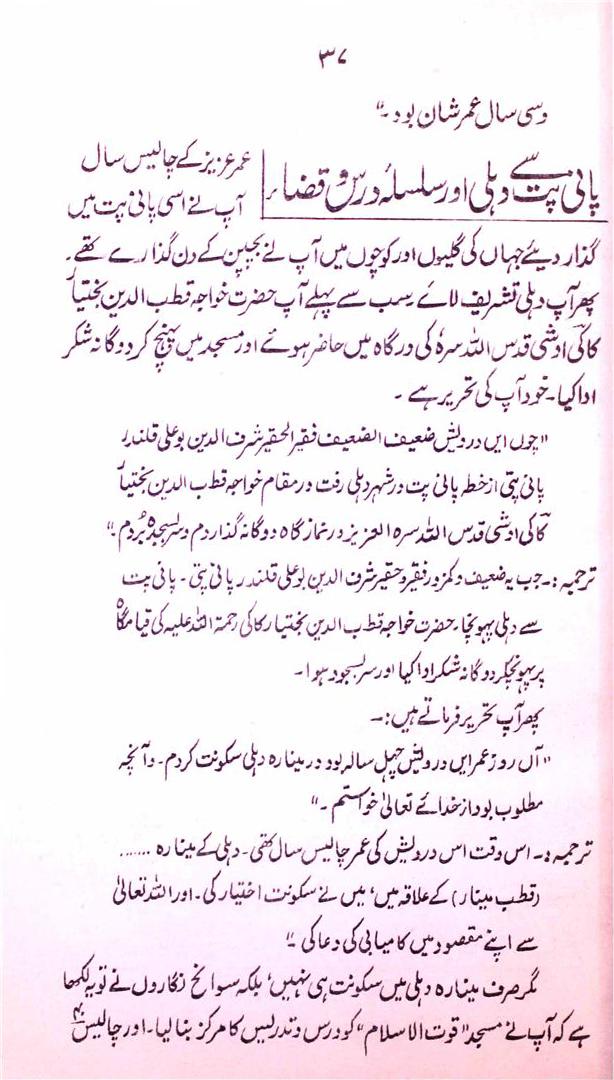 ۳۷
وسی سال عمر شان بود۔"
پانی پت سے دہلی اور سلسلۂ درس و قضاء
عمر عزیز کے چالیس سال
آپ نے اسی پانی پت میں
گذار دیئے جہاں کی گلیوں اور کوچوں میں آپ نے بچپن کے دن گذارے تھے۔
پھر آپ دہلی تشریف لائے سب سے پہلے آپ حضرت خواجہ قطب الدین بختیار
کاکی اوشی قدس اللہ سرہٗ کی درگاہ میں حاضر ہوئے اور مسجد میں پہنچ کر دوگانہ شکر
ادا کیا۔ خود آپ کی تحریر ہے ۔
"چوں ایں درویش ضعیف الضعیف فقیر الحقیر شرف الدین بو علی قلندر
پانی پتی از خطہ پانی پت در شہر دہلی رفت در مقام خواجہ قطب الدین بختیار
کاکی اوشی قدس اللہ سرہ العزیز در نماز گاہ دوگانہ گذاردم و سر بسجدہ بُردم۔"
ترجمہ :۔ جب یہ ضعیف و کمزور فقیر و حقیر شرف الدین بو علی قلندر پانی پتی ۔ پانی پت
سے دہلی پہونچا۔ حضرت خواجہ قطب الدین بختیار کاکی رحمۃ اللہ علیہ کی قیام گاہ
پر پہونچکر دوگانہ شکر ادا کیا اور سر بسجود ہوا۔
پھر آپ تحریر فرماتے ہیں :۔
"آں روز عمر ایں درویش چہل سالہ بود در مینارہ دہلی سکونت کردم۔ و آنچہ
مطلوب بود از خدائے تعالیٰ خواستم ۔"
ترجمہ :۔ اس وقت اس درویش کی عمر چالیس سال تھی۔ دہلی کے مینارہ .......
(قطب مینار) کے علاقہ میں، میں نے سکونت اختیار کی۔ اور اللہ تعالیٰ
سے اپنے مقصود میں کامیابی کی دعا کی ۔"
مگر صرف مینارہ دہلی میں سکونت ہی نہیں، بلکہ سوانح نگاروں نے تو یہ لکھا
ہے کہ آپ نے مسجد "قوت الاسلام" کو درس و تدریس کا مرکز بنا لیا۔ اور چالیس